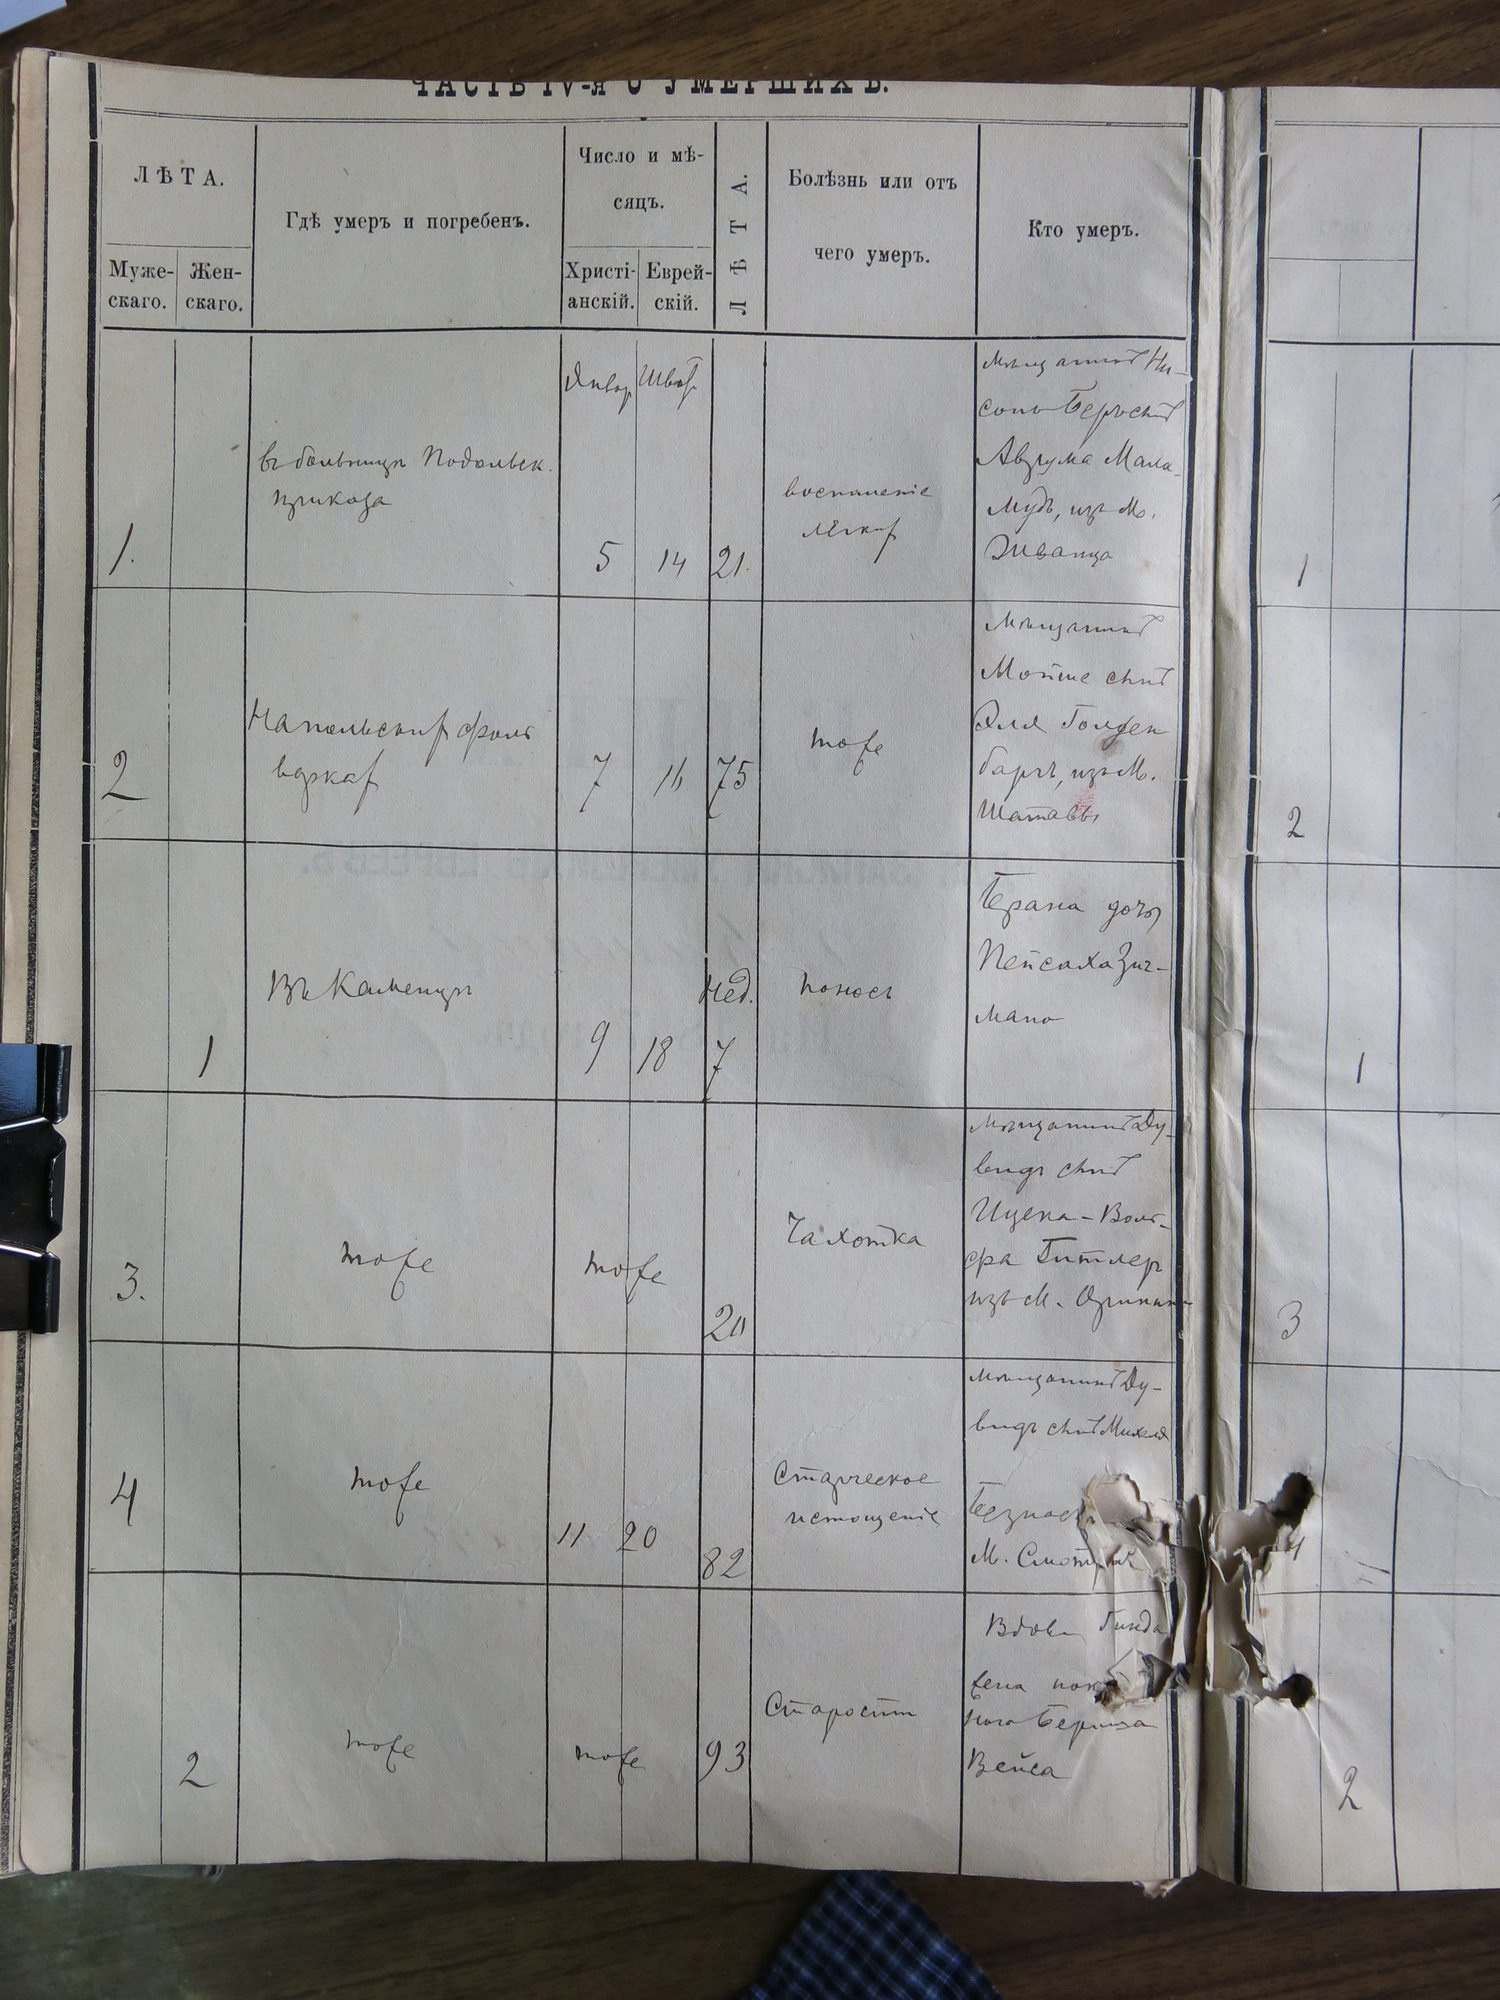 ЧАСТЬ IV-я О УМЕРШИХЪ.
ЛѢТА.
Муже-
скаго.
Жен-
скаго.
Гдѣ умеръ и погребенъ.
Число и мѣ-
сяцъ.
Христі-
анскій.
Еврей-
скій.
ЛѢТА.
Болѣзнь или отъ
чего умеръ.
Кто умеръ.
1.
въ больницѣ Подольск.
приказа
Январ
5
Шват
14
21.
воспаленіе
легких
мѣщанинъ Ни-
сонъ Беръ сынъ
Аврума Мала-
мудъ, изъ м.
Жванца
1
2
На польских фоль
варках
7
16
75
тоже
мѣщанинъ
Мойше сынъ
Эля Голден
барг, изъ м.
Шатавы
2
1
Въ Каменцѣ
9
18
Нед.
7
поносъ
дочь
Пейсаха Зиг-
мана
1
3.
тоже
тоже
20
Чахотка
мѣщанинъ Ду-
видъ сынъ
Ицека-Воль-
фа Гитлер
изъ м. Оринин
3
4
тоже
11
20
82
Старческое
истощеніе
мѣщанинъ Ду-
видъ сынъ Михеля
м. Смотрич
4
2
тоже
тоже
93
Старости
Вдова Гинда
жена пок
ного Бериша
Вейса
2